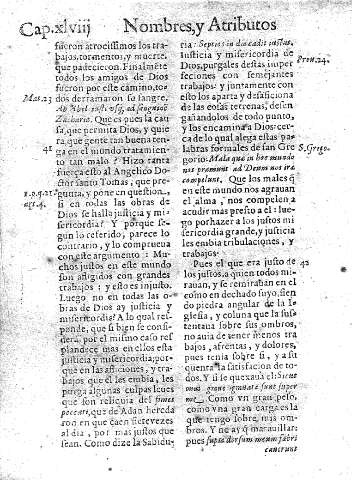 Cap.xlviij Nombres,y Atributos
fueron atrocissimos los tra-
bajos,tormentos,y muerte,
que padecieron. Finalmēte
todos los amigos de Dios
fueron por este camino,to-
dos derramaron su sangre.
Mat.23
Ab Abel iusti usq, ad sanguinē
Zacharie. Que es pues la cau-
sa,que permita Dios, y quie-
ra,que gente tan buena ten-
ga en el mundo tratamiento
41
tan malo? Hizo tanta
fuerça esto al Angelico Do-
ctor santo Tomas, que pre-
gunta, y pone en question,
1.p.q.21
art.4.
si en todas las obras de
Dios se halla justicia y mi-
sericordia? Y porque se-
gun lo referido, parece lo
contrario, y lo comprueua
con este argumento: Mu-
chos justos en este mundo
son afligidos con grandes
trabajos: y esto es injusto.
Luego no en todas las o-
bras de Dios ay justicia y
misericordia? A lo qual res-
ponde, que si bien se consi-
dera, por el mismo caso res
plandece mas en ellos esta
justicia y misericordia,por-
que en las aflicciones, y tra-
bajos que el les embia, les
purga algunas culpas leues
que son reliquia del fomes
peccati, que de Adan hereda
ron en que caen siete vezes
al dia, por mas justos que
sean. Como dize la Sabidu-
ria: Septies in die cadit iustus,
Prou.24.
Iusticia y misericordia de
Dios,purgales destas imper
fecciones con semejantes
trabajos: y juntamente con
esto los aparta y desaficiona
de las cosas terrenas, desen
gañandolos de todo punto,
y los encamina a Dios: cer-
ca de lo qual alega estas pa-
labras formales de san Gre
S.Grego.
gorio: Mala que in hoc mundo
nos premunt ad Deum nos ire
compelunt. Que los males q̄
en este mundo nos agrauan
el alma, nos compelen a
acudir mas presto a el: lue-
go por hazer a los justos mi
sericordia grande,y justicia
les embia tribulaciones, y
trabajos.
Pues el que era justo de
42
los justos, a quien todos mi-
rauan, y se remirauan en el
como en dechado suyo,sien
do piedra angular de la I-
glesia, y coluna que la sus-
tentaua sobre sus ombros,
no auia de tener menos tra
bajos, afrentas, y dolores,
pues tenia sobre si, y a su
quenta la satisfacion de to-
dos. Y si se quexaua el: Sicut
onus graue grauate sunt super
me. Como vn gran peso,
como vna gran carga es la
que tengo sobre mis om-
bros. Y no ay q̄ marauillar:
pues supra dorsum meum fabri
cauerunt